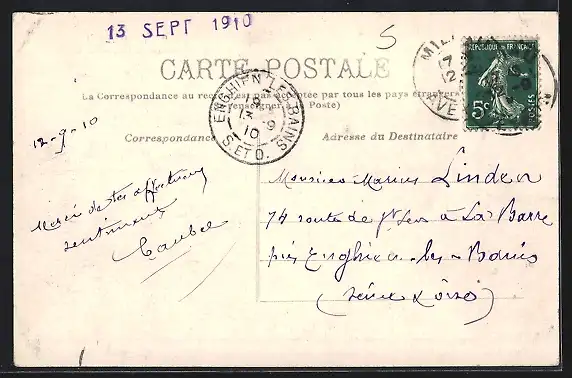 13 SEPT 1910
5
CARTE POSTALE
La Correspondance au recto n'est pas acceptée par tous les pays étrangers
(Se renseigner à la Poste)
Correspondance
Adresse du Destinataire
REPUBLIQUE FRANÇAISE
5c
POSTES
ENGHIEN-LES-BAINS
13 - 9
10
S. ET O.
12-9-10
Merci de tes affectueux
sentiments
Monsieur Marius Linden
74 route de St Leu à La Barre
près Enghien-les-Bains
(Seine & Oise)